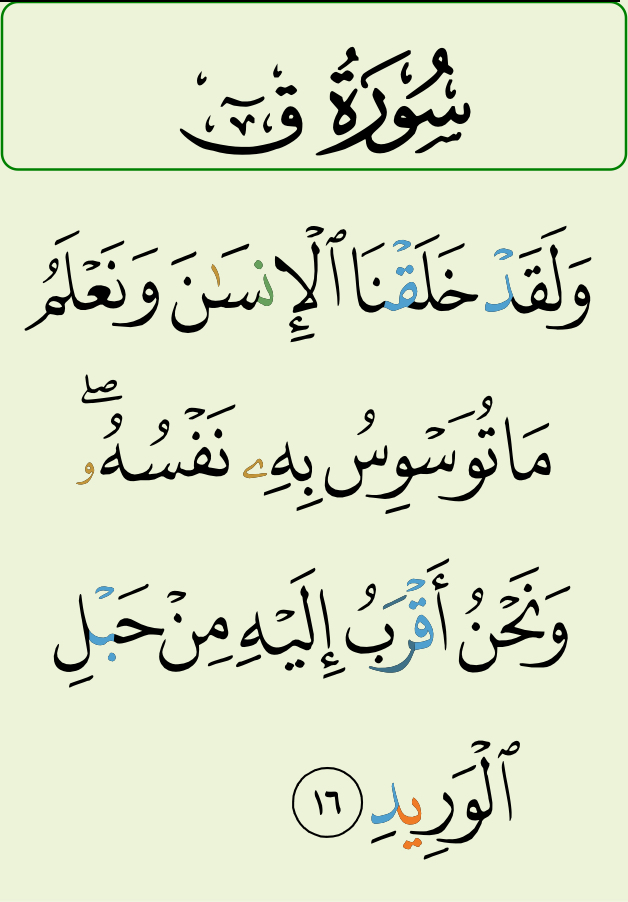 سُورَةُ قٓ
وَلَقَدْ خَلَقْنَا ٱلْإِنسَٰنَ وَنَعْلَمُ
مَا تُوَسْوِسُ بِهِۦ نَفْسُهُۥ ۖ
وَنَحْنُ أَقْرَبُ إِلَيْهِ مِنْ حَبْلِ
ٱلْوَرِيدِ ١٦